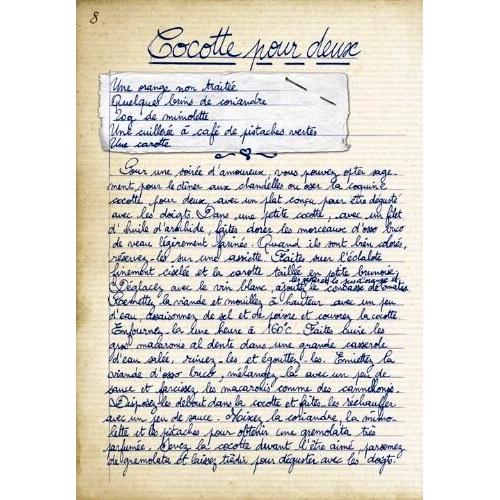 8
Cocotte pour deux
Une orange non traitée
Quelques brins de coriandre
20g de mimolette
Une cuillère à café de pistaches vertes
Une carotte
Pour une soirée d'amoureux, vous pouvez opter sage-
ment pour le dîner aux chandelles ou oser la coquine
cocotte pour deux, avec un plat conçu pour être dégusté
avec les doigts. Dans une petite cocotte, avec un filet
d'huile d'arachide, faites dorer les morceaux d'osso buco
de veau légèrement farinés. Quand ils sont bien colorés,
réservez-les sur une assiette. Faites suer l'échalote
finement ciselée et la carotte taillée en petite brunoise,
les zestes et le jus d'orange et
Déglacez avec le vin blanc, ajoutez le concassé de tomates.
Remettez la viande et mouillez à hauteur avec un peu
d'eau, assaisonnez de sel et de poivre et couvrez la cocotte
Enfournez-la une heure à 160°c. Faites cuire les
gros macaronis al dente dans une grande casserole
d'eau salée, rincez-les et égouttez-les. Emiettez la
viande d'osso buco, mélangez-la avec un peu de
sauce et farcissez les macaronis comme des cannellonis.
Disposez-les debout dans la cocotte et faites-les réchauffer
avec un peu de sauce. Mixez la coriandre, la mimo-
lette et les pistaches pour obtenir une gremolata très
parfumée. Servez la cocotte devant l'être aimé, parsemez
de gremolata et laissez tiédir pour déguster avec les doigts.